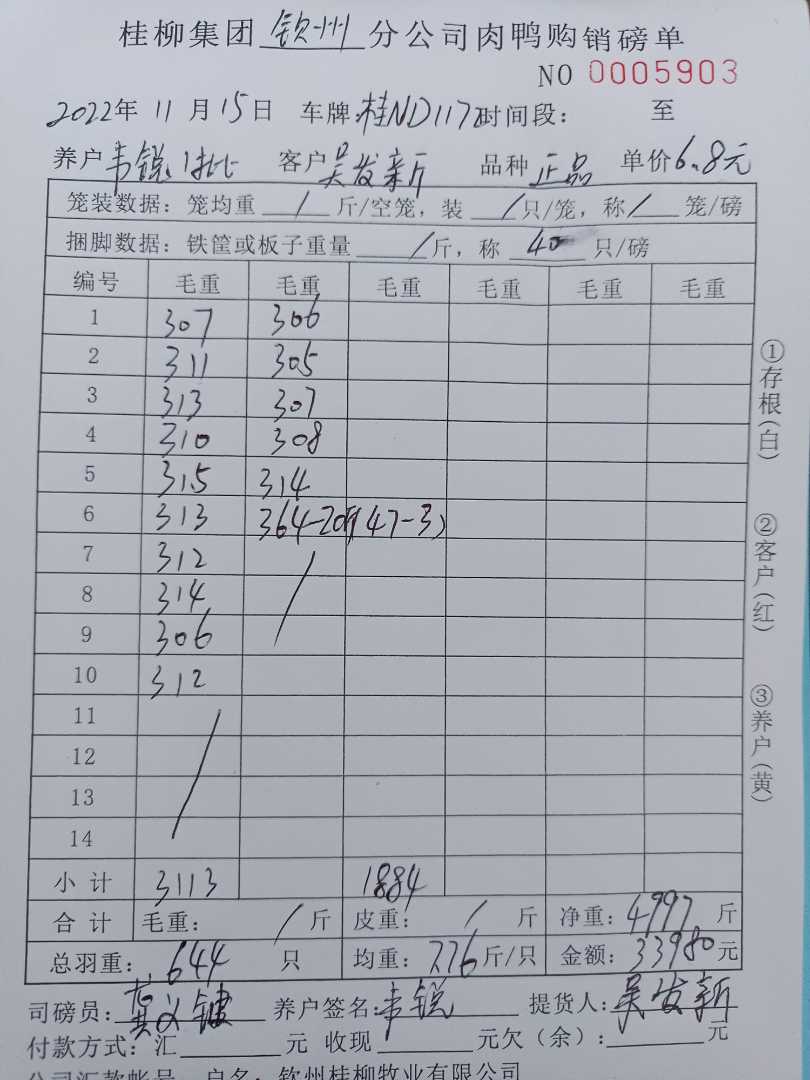 桂柳集团钦州分公司肉鸭购销磅单
NO 0005903
2022年11月15日 车牌:桂ND117 时间段: 至
养户韦锐1批 客户吴发新 品种正品 单价6.8元
笼装数据: 笼均重 / 斤/空笼, 装 / 只/笼, 称 / 笼/磅
捆脚数据: 铁筐或板子重量 / 斤, 称 40 只/磅
编号 毛重 毛重 毛重 毛重 毛重 毛重
1 307 306
2 311 305
3 313 307
4 310 308
5 315 314
6 313 364-20(47-3)
7 312 /
8 314
9 306
10 312
11 /
12
13
14
小计 3113 1884
合计 毛重: / 斤 皮重: / 斤 净重: 4997 斤
总羽重: 644 只 均重: 7.76 斤/只 金额: 33980 元
司磅员: 养户签名: 韦锐 提货人: 吴发新
付款方式: 汇 元 收现 元欠(余): 元
公司汇款帐号 户名: 钦州桂柳牧业有限公司
①存根(白)
②客户(红)
③养户(黄)